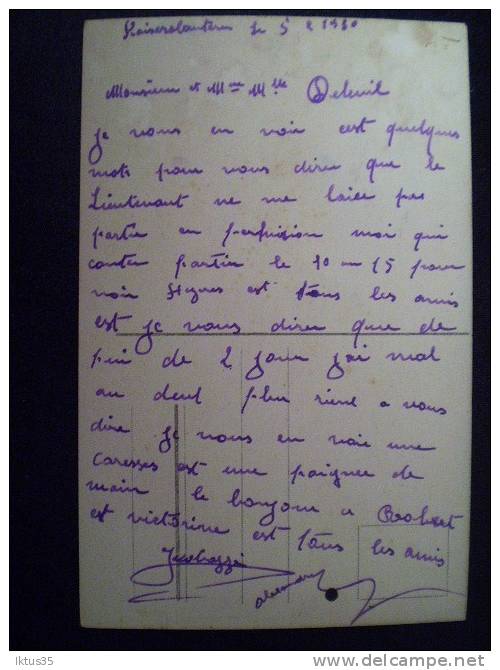 Kaiserslautern le 5 2 1930
Monsieur et Mme Mlle Deleuil
je vous en voie est quelques
mots pour vous direr que le
Lieutenant ne me laice pas
partir en permision moi qui
conter partir le 10 au 15 pour
voir Hyeres est tous les amis
est je vous direr que de
puis de 2 jour j'ai mal
au deut plu rien a vous
dire je vous en voie une
caresses est une poignee de
main le bonjour a Robert
est victorine est tous les amis
Alexandre
Iktus35
delcampe.net